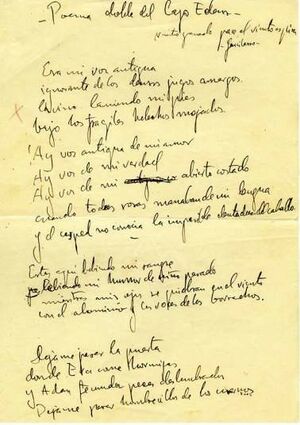 - Poema doble del Lago Edem -
Era mi voz antigua
ignorante de los densos jugos amargos
lamiendo mis pies
bajo los fragiles helechos mojados
¡Ay voz antigua de mi amor
Ay voz de mi verdad
Ay voz de mi abierto costado
cuando todas rosas manaban de mi lengua
y el cesped no conocia la impasible dentadura del caballo
Estas aqui bebiendo mi sangre
bebiendo mi humor de niño pasado
mientras mis ojos se quiebran en el viento
con el aluminio y las voces de los borrachos.
Dejame pasar la puerta
donde Eva come hormigas
y Adan fecunda peces deslumbrados
Dejame pasar hombrecillo de los cuernos